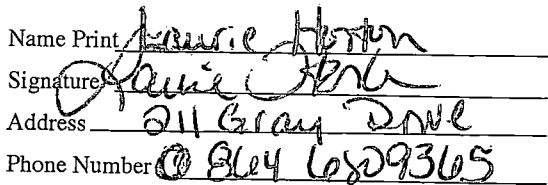 Name Print Laurie Horton
Signature Laurie Horton
Address 211 Gray Drive
Phone Number @ 864 6809365